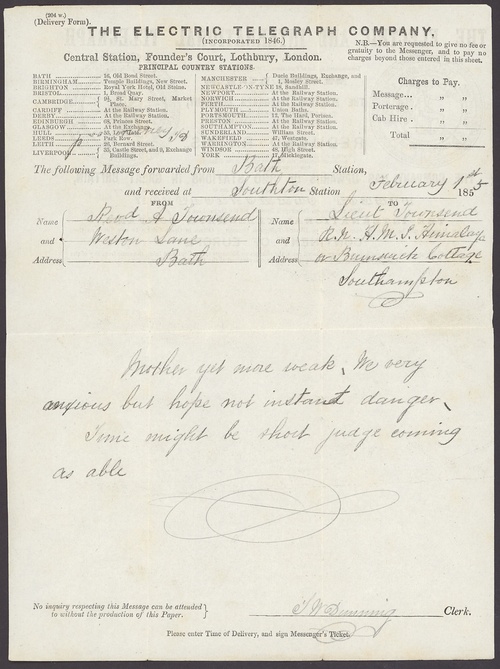 (204 w.)
(Delivery Form).
THE ELECTRIC TELEGRAPH COMPANY,
(INCORPORATED 1846.)
Central Station, Founder's Court, Lothbury, London.
PRINCIPAL COUNTRY STATIONS.
N.B.—You are requested to give no fee or
gratuity to the Messenger, and to pay no
charges beyond those entered in this sheet.
BATH 16, Old Bond Street.
BIRMINGHAM Temple Buildings, New Street.
BRIGHTON Royal York Hotel, Old Steine.
BRISTOL 1, Broad Quay.
CAMBRIDGE St. Mary Street, Market Place.
CARDIFF At the Railway Station.
DERBY At the Railway Station.
EDINBURGH 68, Princes Street.
GLASGOW At the Exchange
HULL
LEEDS Park Row
LEITH 26, Bernard Street.
LIVERPOOL Castle Street, and 9, Exchange Buildings.
MANCHESTER Ducie Buildings, Exchange, and 1, Mosley Street.
NEWCASTLE-ON-TYNE 18, Sandhill.
NEWPORT At the Railway Station.
NORWICH At the Railway Station.
PERTH At the Railway Station.
PLYMOUTH Union Baths.
PORTSMOUTH 12, The Hard, Portsea.
PRESTON At the Railway Station.
SOUTHAMPTON At the Railway Station.
SUNDERLAND William Street.
WAKEFIELD 47, Westgate.
WARRINGTON At the Railway Station.
WINDSOR 48, High Street.
YORK Micklegate.
Charges to Pay.
Message " "
Porterage " "
Cab Hire " "
Total " "
The following Message forwarded from Bath Station,
and received at Southton Station February 1st 1855
FROM
Name and Address
Revd A Townsend
Weston Lane
Bath
TO
Name and Address
Lieut Townsend
R.N. H.M.S. Himalaya
or Brunswick Cottage
Southampton
Mother yet more weak, We very
anxious but hope not instant danger,
Time might be short judge coming
as able
No inquiry respecting this Message can be attended
to without the production of this Paper.
Clerk.
Please enter Time of Delivery, and sign Messenger's Ticket.